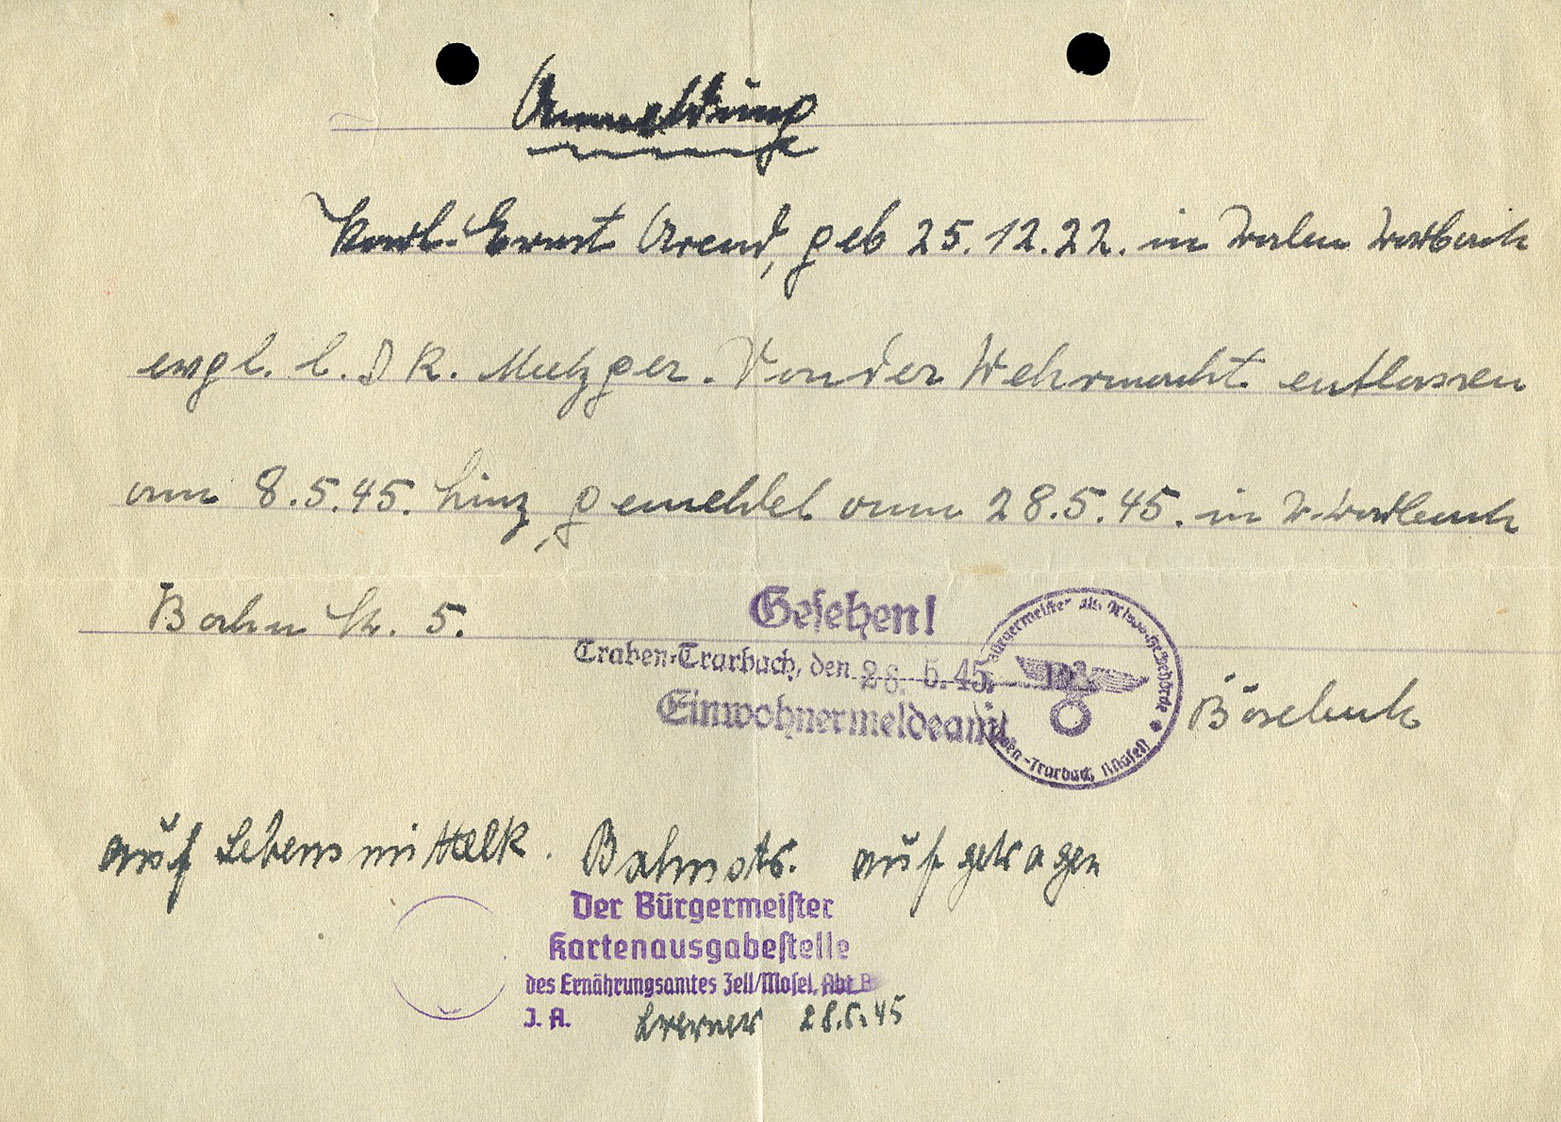 Anmeldung
Karl-Ernst Arend, geb 25.12.22. in
evgl. l. D R. Metzger. Von der Wehrmacht entlassen
am 8.5.45. Linz, gemeldet am 28.5.45. in
Bahn 5.
Gesehen!
Traben-Trarbach, den 28. 5. 45.
Einwohnermeldeamt
Bürgermeister als
Traben-Trarbach
auf Lebensmittelk. aufgetragen
Der Bürgermeister
Kartenausgabestelle
des Ernährungsamtes Zell/Mosel, Abt. B
J. A. 28.5.45